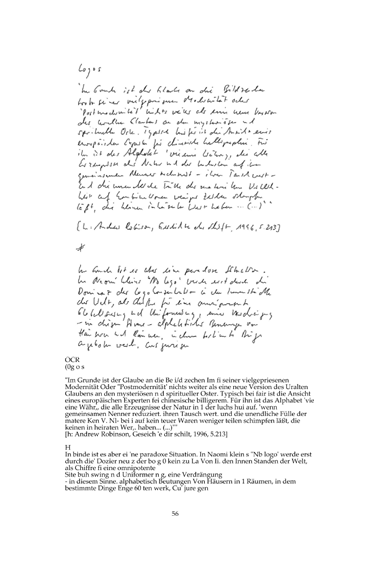 Logos
"Im Grunde ist der Glaube an die Bildzeichen
trotz seiner vielgepriesenen Modernität oder
'Postmodernität' nichts weiter als eine neue Version
des uralten Glaubens an den mysteriösen und
spirituellen Osten. Typisch hierfür ist die Ansicht eines
europäischen Experten für chinesische Kalligraphie. Für
ihn ist das Alphabet 'wie eine Währung, die alle
Erzeugnisse der Natur und der Industrie auf einen
gemeinsamen Nenner reduziert - ihren Tauschwert -
und die unendliche Fülle der materiellen Wirklich-
keit auf Kombinationen weniger Zeichen
läßt, die keinen inhärenten Wert haben ... (...)'"
Andrew Robinson, Geschichte der Schrift, 1996, S.213]
In Grunde ist es aber eine paradoxe Situation.
In Naomi Kleins "No Logo" werde erst durch die
Dominanz der in den Innenstädten
der Welt, als Chiffre für eine omnipotente
Globalisierung und Uniformierung, eine Verdrängung
- in diesem Sinne - alphabetischer Benennungen von
Häusern und Räumen, in denen bestimmte Dinge
angeboten werden,
OCR
(0g o s
"Im Grunde ist der Glaube an die Be i/d zechen Im fi seiner vielgepriesenen
Modernität Oder "Postmodernität' nichts weiter als eine neue Version des Uralten
Glaubens an den mysteriösen n d spiritueller Oster. Typisch bei fair ist die Ansicht
eines europäischen Experten fei chinesische billigerem. Für ihn ist das Alphabet 'vie
eine Währ,, die alle Erzeugnisse der Natur in 1 der luchs hui auf. 'wenn
gemeinsamen Nenner reduziert. ihren Tausch wert. und die unendliche Fülle der
matere Ken V. NJ- bei i auf kein teuer Waren weniger teilen schimpfen läßt, die
keinen in heiraten Wer,. haben... (...)""
[h: Andrew Robinson, Geseich 'e dir schilt, 1996, 5.213]
H
In binde ist es aber ei 'ne paradoxe Situation. In Naomi klein s "Nb logo' werde erst
durch die' Dozier neu z der bo g 0 kein zu La Von Ii. den Innen Standen der Welt,
als Chiffre fi eine omnipotente
Site buh swing n d Uniformer n g, eine Verdrängung
- in diesem Sinne. alphabetisch Beutungen Von Häusern in 1 Räumen, in dem
bestimmte Dinge Enge 60 ten werk, Cu' jure gen
56